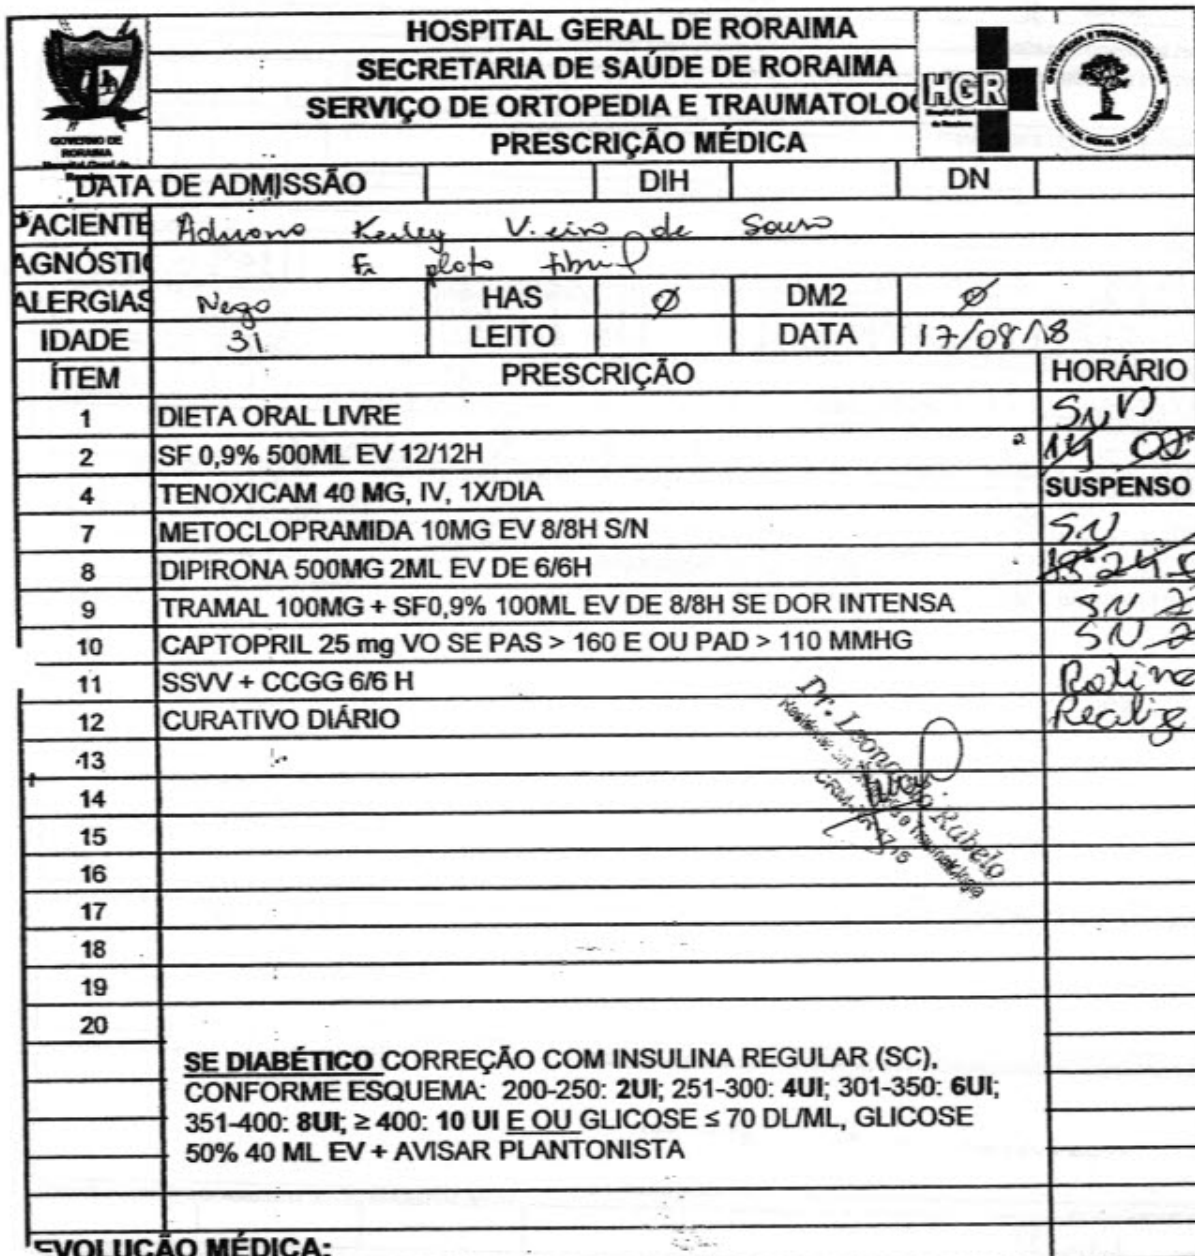 HOSPITAL GERAL DE RORAIMA
SECRETARIA DE SAÚDE DE RORAIMA
SERVIÇO DE ORTOPEDIA E TRAUMATOLOG
PRESCRIÇÃO MÉDICA
GOVERNO DE
RORAIMA
HGR
DATA DE ADMISSÃO DIH DN
PACIENTE Adriano Kerley Vieira de Souza
AGNÓSTI Fx plato tibial
ALERGIAS Nega HAS Ø DM2 Ø
IDADE 31 LEITO DATA 17/08/18
ÍTEM PRESCRIÇÃO HORÁRIO
1 DIETA ORAL LIVRE SND
2 SF 0,9% 500ML EV 12/12H 14 02
4 TENOXICAM 40 MG, IV, 1X/DIA SUSPENSO
7 METOCLOPRAMIDA 10MG EV 8/8H S/N SN
8 DIPIRONA 500MG 2ML EV DE 6/6H 24
9 TRAMAL 100MG + SF0,9% 100ML EV DE 8/8H SE DOR INTENSA SN
10 CAPTOPRIL 25 mg VO SE PAS > 160 E OU PAD > 110 MMHG SN
11 SSVV + CCGG 6/6 H Rotina
12 CURATIVO DIÁRIO Realize
Dr. Leonardo Rabelo
13
14
15
16
17
18
19
20
SE DIABÉTICO CORREÇÃO COM INSULINA REGULAR (SC),
CONFORME ESQUEMA: 200-250: 2UI; 251-300: 4UI; 301-350: 6UI;
351-400: 8UI; ≥ 400: 10 UI E OU GLICOSE ≤ 70 DL/ML, GLICOSE
50% 40 ML EV + AVISAR PLANTONISTA
EVOLUÇÃO MÉDICA: